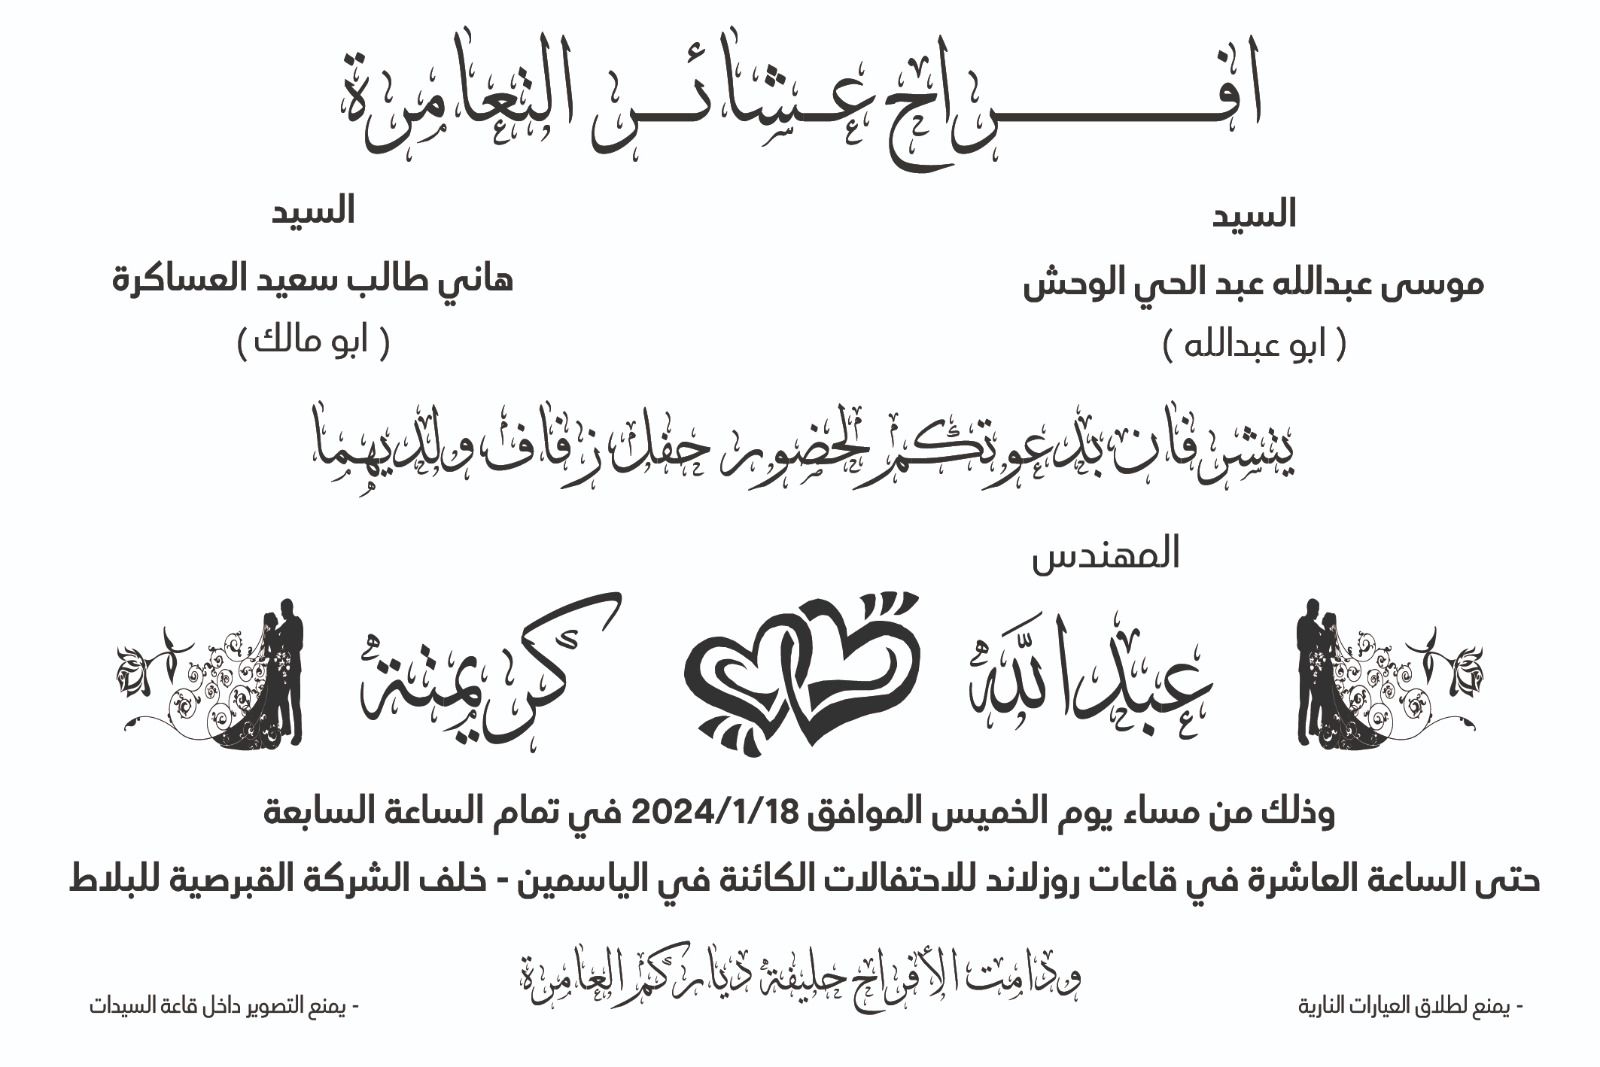 افراح عشائر التعامرة
السيد
موسى عبدالله عبد الحي الوحش
( ابو عبدالله )
السيد
هاني طالب سعيد العساكرة
( ابو مالك )
يتشرفان بدعوتكم لحضور حفل زفاف ولديهما
المهندس
عبدالله
كريمته
وذلك من مساء يوم الخميس الموافق 2024/1/18 في تمام الساعة السابعة
حتى الساعة العاشرة في قاعات روزلاند للاحتفالات الكائنة في الياسمين - خلف الشركة القبرصية للبلاط
ودامت الأفراح حليفة دياركم العامرة
- يمنع لطلاق العيارات النارية
- يمنع التصوير داخل قاعة السيدات